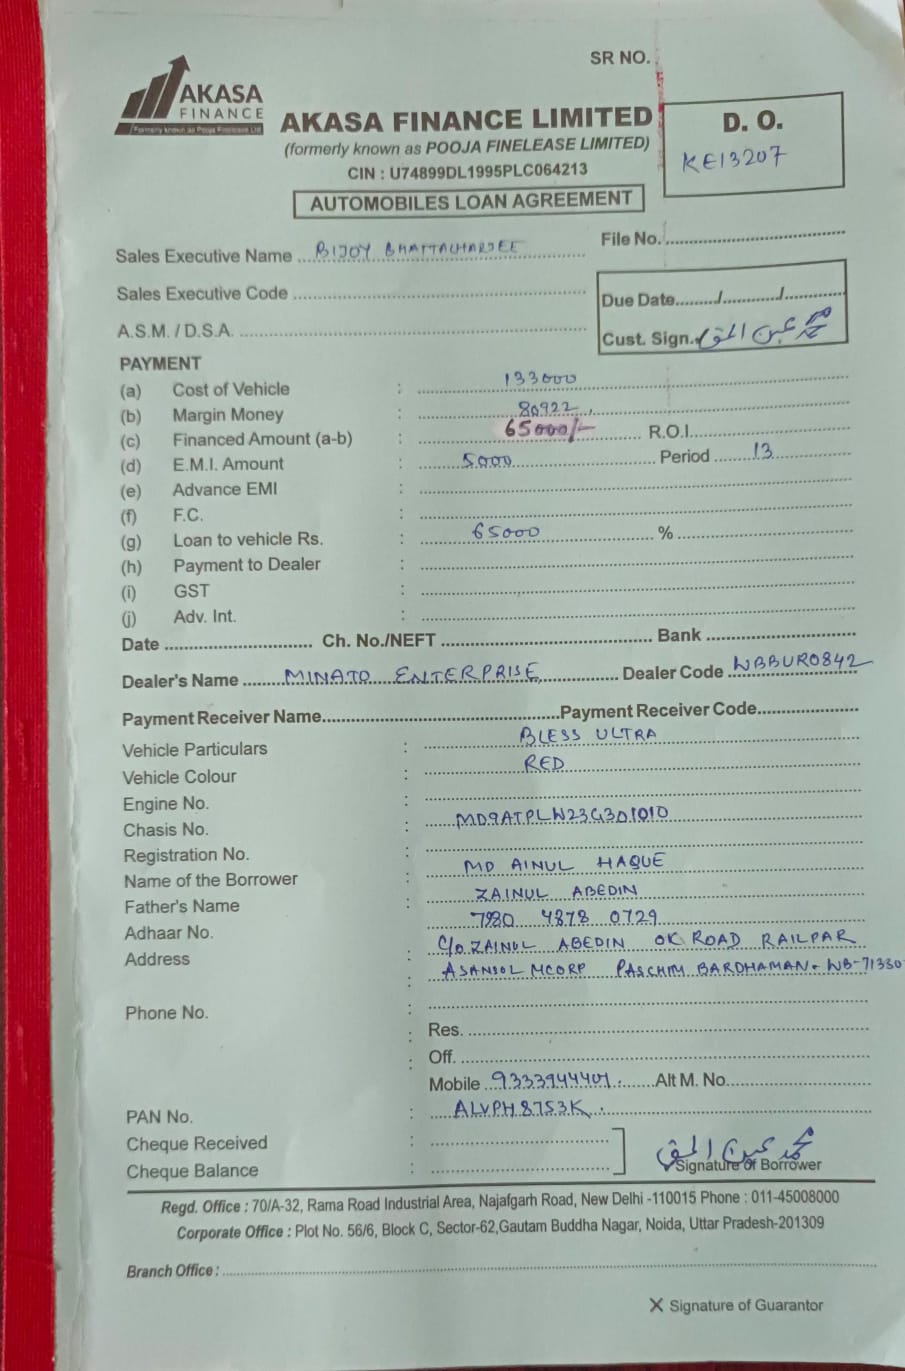 SR NO.
AKASA
FINANCE
Formerly known as Pooja Finelease Ltd
AKASA FINANCE LIMITED
(formerly known as POOJA FINELEASE LIMITED)
CIN : U74899DL1995PLC064213
AUTOMOBILES LOAN AGREEMENT
D. O.
KE13207
Sales Executive Name ... BIJOY BHATTACHARJEE
File No.
Sales Executive Code
Due Date......../............/............
A.S.M. / D.S.A.
Cust. Sign. محمد عین الحق
PAYMENT
(a) Cost of Vehicle : 133000
(b) Margin Money : 80922
(c) Financed Amount (a-b) : 65000/- R.O.I.
(d) E.M.I. Amount : 5000 Period 13
(e) Advance EMI :
(f) F.C. :
(g) Loan to vehicle Rs. : 65000 %
(h) Payment to Dealer :
(i) GST :
(j) Adv. Int. :
Date ............ Ch. No./NEFT ............ Bank ............
Dealer's Name MINATO ENTERPRISE Dealer Code WBBUR0842
Payment Receiver Name............Payment Receiver Code............
Vehicle Particulars : BLESS ULTRA
Vehicle Colour : RED
Engine No. :
Chasis No. : MD9ATPLW23G301010
Registration No. :
Name of the Borrower : MD AINUL HAQUE
Father's Name : ZAINUL ABEDIN
Adhaar No. 7980 4878 0729
Address : C/O ZAINUL ABEDIN OK ROAD RAILPAR
: ASANSOL MCORP PASCHIM BARDHAMAN WB-71330
Phone No. :
: Res.
: Off.
Mobile 9333944401 Alt M. No.
PAN No. : ALVPH8753K
Cheque Received :
Cheque Balance :
محمد عین الحق
Signature of Borrower
Regd. Office : 70/A-32, Rama Road Industrial Area, Najafgarh Road, New Delhi -110015 Phone : 011-45008000
Corporate Office : Plot No. 56/6, Block C, Sector-62,Gautam Buddha Nagar, Noida, Uttar Pradesh-201309
Branch Office :
X Signature of Guarantor